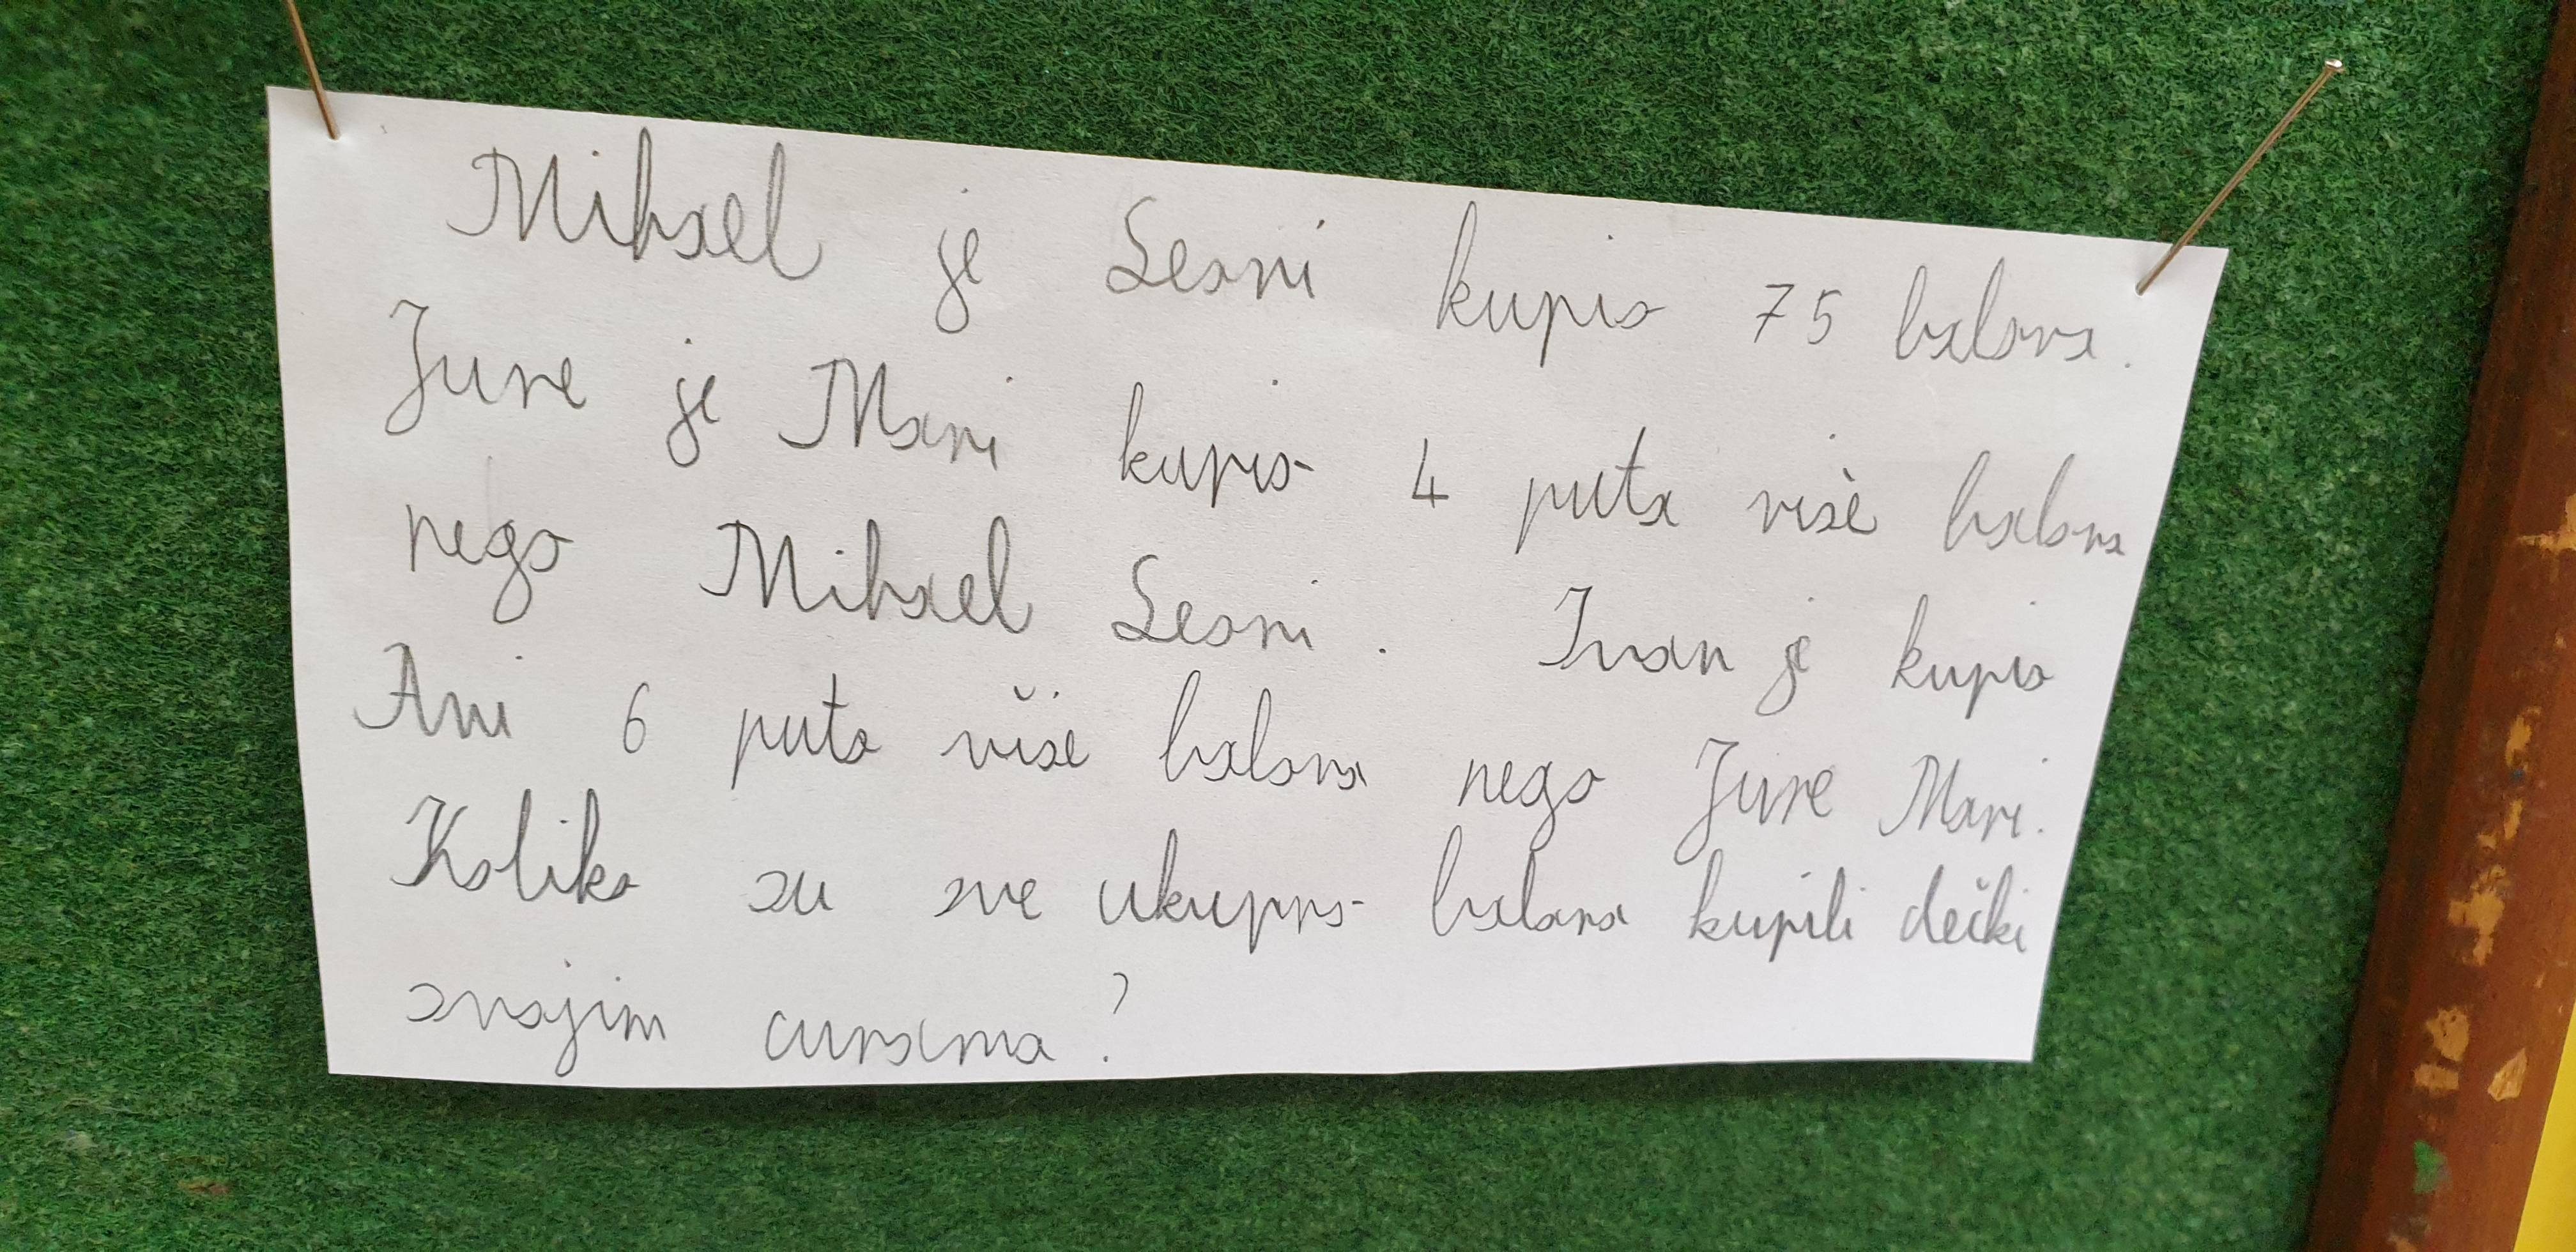 Mihael je Leoni kupio 75 balona.
Jure je Mari kupio 4 puta više balona
nego Mihael Leoni. Ivan je kupio
Ani 6 puta više balona nego Jure Mari.
Koliko su sve ukupno balona kupili dečki
svojim curama?